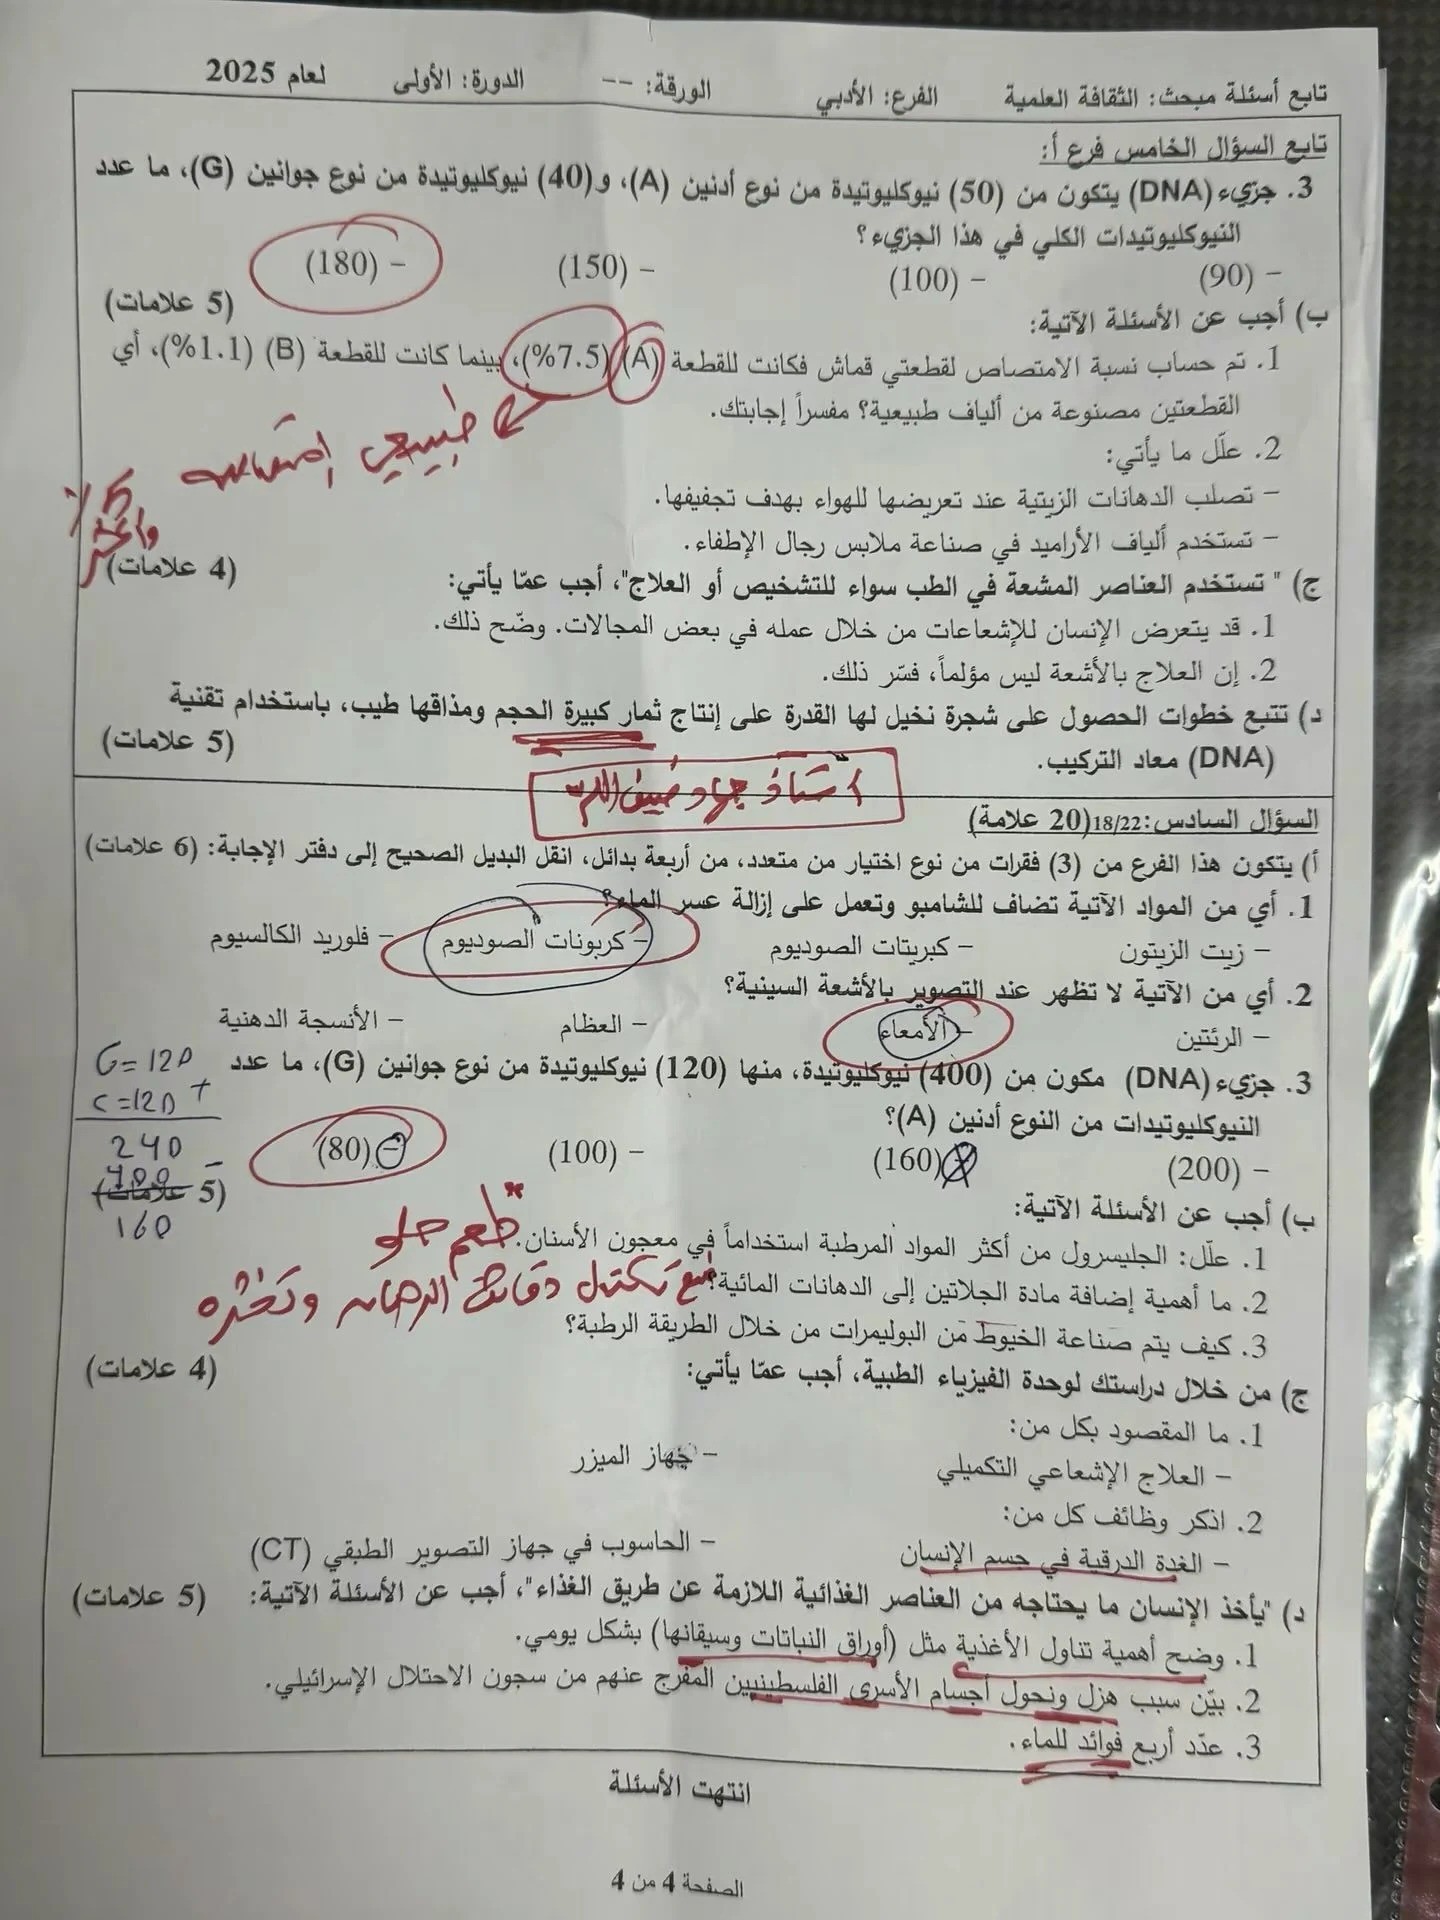 تابع أسئلة مبحث: الثقافة العلمية الفرع: الأدبي الورقة: -- الدورة: الأولى لعام 2025
تابع السؤال الخامس فرع أ:
3. جزيء (DNA) يتكون من (50) نيوكليوتيدة من نوع أدنين (A)، و(40) نيوكليوتيدة من نوع جوانين (G)، ما عدد
النيوكليوتيدات الكلي في هذا الجزيء؟
- (90) - (100) - (150) - (180)
(5 علامات)
ب) أجب عن الأسئلة الآتية:
1. تم حساب نسبة الامتصاص لقطعتي قماش فكانت للقطعة (A) (7.5%)، بينما كانت للقطعة (B) (1.1%)، أي
القطعتين مصنوعة من ألياف طبيعية؟ مفسراً إجابتك.
طبيعي امتصاصه
5%
وأكثر
2. علّل ما يأتي:
- تصلب الدهانات الزيتية عند تعريضها للهواء بهدف تجفيفها.
- تستخدم ألياف الأراميد في صناعة ملابس رجال الإطفاء.
(4 علامات)
ج) "تستخدم العناصر المشعة في الطب سواء للتشخيص أو العلاج"، أجب عمّا يأتي:
1. قد يتعرض الإنسان للإشعاعات من خلال عمله في بعض المجالات. وضّح ذلك.
2. إن العلاج بالأشعة ليس مؤلماً، فسّر ذلك.
د) تتبع خطوات الحصول على شجرة نخيل لها القدرة على إنتاج ثمار كبيرة الحجم ومذاقها طيب، باستخدام تقنية
(DNA) معاد التركيب. (5 علامات)
أستاذ جهاد ضيف الله
السؤال السادس: 18/22(20 علامة)
أ) يتكون هذا الفرع من (3) فقرات من نوع اختيار من متعدد، من أربعة بدائل، انقل البديل الصحيح إلى دفتر الإجابة: (6 علامات)
1. أي من المواد الآتية تضاف للشامبو وتعمل على إزالة عسر الماء؟
- زيت الزيتون - كبريتات الصوديوم - كربونات الصوديوم - فلوريد الكالسيوم
2. أي من الآتية لا تظهر عند التصوير بالأشعة السينية؟
- الرئتين - الأمعاء - العظام - الأنسجة الدهنية
3. جزيء (DNA) مكون من (400) نيوكليوتيدة، منها (120) نيوكليوتيدة من نوع جوانين (G)، ما عدد
النيوكليوتيدات من النوع أدنين (A)؟
- (200) - (160) - (100) - (80)
G=120
C=120 +
240
400 -
160
(5 علامات)
ب) أجب عن الأسئلة الآتية:
1. علّل: الجليسرول من أكثر المواد المرطبة استخداماً في معجون الأسنان. طعم حلو
2. ما أهمية إضافة مادة الجلاتين إلى الدهانات المائية؟ منع تكتل دقائق الدهان وتخثره
3. كيف يتم صناعة الخيوط من البوليمرات من خلال الطريقة الرطبة؟
(4 علامات)
ج) من خلال دراستك لوحدة الفيزياء الطبية، أجب عمّا يأتي:
1. ما المقصود بكل من:
- العلاج الإشعاعي التكميلي - جهاز الميزر
2. اذكر وظائف كل من:
- الغدة الدرقية في جسم الإنسان - الحاسوب في جهاز التصوير الطبقي (CT)
د) "يأخذ الإنسان ما يحتاجه من العناصر الغذائية اللازمة عن طريق الغذاء"، أجب عن الأسئلة الآتية: (5 علامات)
1. وضح أهمية تناول الأغذية مثل (أوراق النباتات وسيقانها) بشكل يومي.
2. بيّن سبب هزل ونحول أجسام الأسرى الفلسطينيين المفرج عنهم من سجون الاحتلال الإسرائيلي.
3. عدّد أربع فوائد للماء.
انتهت الأسئلة
الصفحة 4 من 4